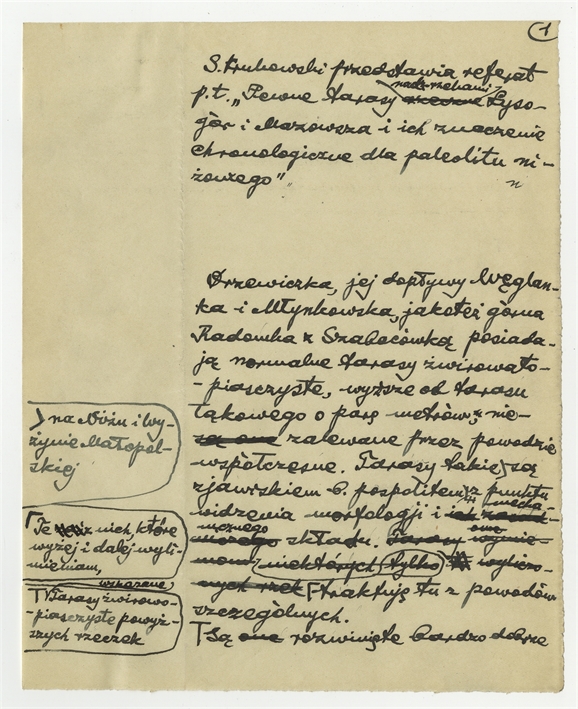 1
S. Krukowski przedstawia referat
nadrzekami
p.t. „Pewne tarasy rzeczne Łyso-
gór i Mazowsza i ich znaczenie
chronologiczne dla paleolitu ni-
żowego”
Drzewiczka, jej dopływy Węglan-
ka i Młynkowska, jakoteż górna
Radomka z Szabasówką posiada-
ją normalne tarasy żwirowato-
-piaszczyste, wyższe od tarasu
łąkowego o parę metrów, nie-
są one zalewane przez powodzie
współczesne. Tarasy takie są
zjawiskiem b. pospolitem z punktu
widzenia morfologji i ich
mecha-
nicznego
składu. Tarasy
tylko
nych rzek traktuję tu z powodów
szczególnych.
Są one rozwinięte bardzo dobrze
na Niżu i Wy-
żynie Małopol-
skiej
Te z nich, które
wyżej i dalej wyli-
mieniam,
wskazane,
Tarasy żwirowo-
-piaszczyste powyż-
szych rzeczek